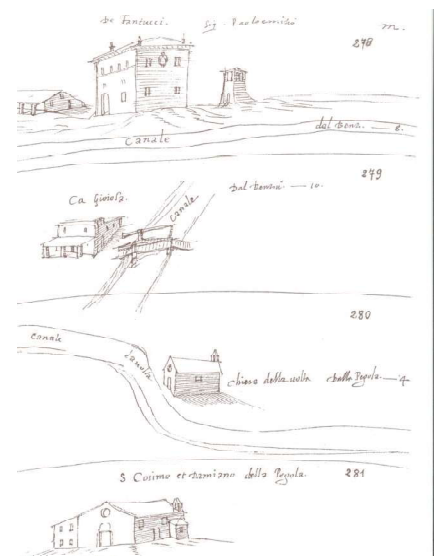 De Fantucci. Sig. Paolo emilio m.
278
Canale del bona. — 8.
279
Ca Gioiosa. Canale dal bonua — 10.
280
canale
danolia chiesa della uolta della Pegola. — 4
S Cosimo et damiano della Pegola. 281